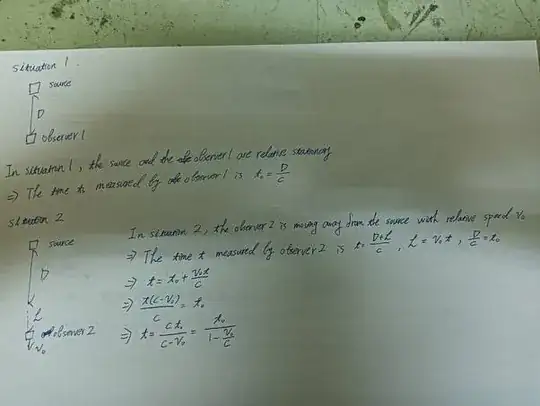 situation 1
source
D
observer 1
In situation 1, the source and the observer 1 are relative stationary
⇒ The time t₀ measured by observer 1 is t₀ = D/c
situation 2
In situation 2, the observer 2 is moving away from the source with relative speed v₀
source
⇒ The time t measured by observer 2 is t = (D+L)/c , L = v₀t , D/c = t₀
D
⇒ t = t₀ + v₀t/c
⇒ t(c-v₀)/c = t₀
L
observer 2
⇒ t = ct₀/(c-v₀) = t₀/(1-v₀/c)
v₀